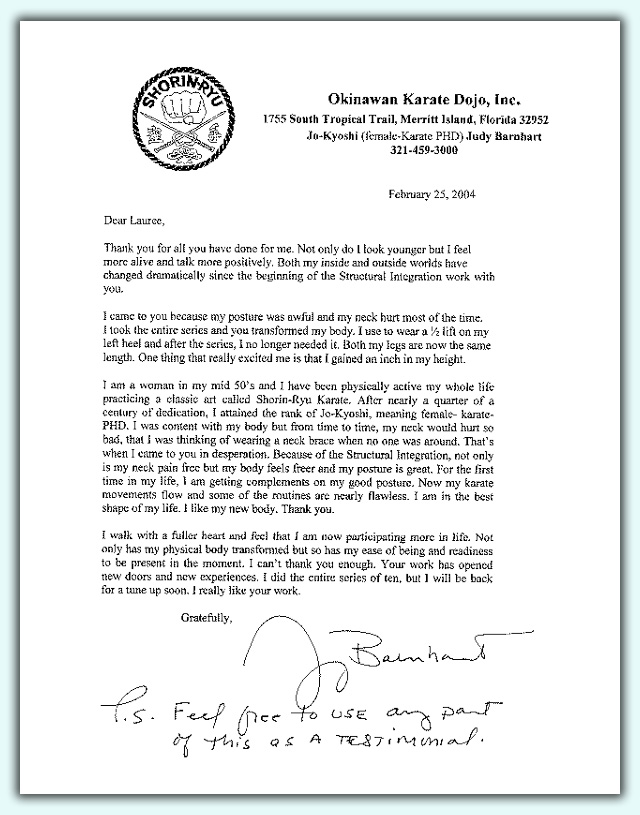 SHORIN-RYU
Okinawan Karate Dojo, Inc.
1755 South Tropical Trail, Merritt Island, Florida 32952
Jo-Kyoshi (female-Karate PHD) Judy Barnhart
321-459-3000
February 25, 2004
Dear Lauree,
Thank you for all you have done for me. Not only do I look younger but I feel
more alive and talk more positively. Both my inside and outside worlds have
changed dramatically since the beginning of the Structural Integration work with
you.
I came to you because my posture was awful and my neck hurt most of the time.
I took the entire series and you transformed my body. I use to wear a ½ lift on my
left heel and after the series, I no longer needed it. Both my legs are now the same
length. One thing that really excited me is that I gained an inch in my height.
I am a woman in my mid 50's and I have been physically active my whole life
practicing a classic art called Shorin-Ryu Karate. After nearly a quarter of a
century of dedication, I attained the rank of Jo-Kyoshi, meaning female- karate-
PHD. I was content with my body but from time to time, my neck would hurt so
bad, that I was thinking of wearing a neck brace when no one was around. That's
when I came to you in desperation. Because of the Structural Integration, not only
is my neck pain free but my body feels freer and my posture is great. For the first
time in my life, I am getting complements on my good posture. Now my karate
movements flow and some of the routines are nearly flawless. I am in the best
shape of my life. I like my new body. Thank you.
I walk with a fuller heart and feel that I am now participating more in life. Not
only has my physical body transformed but so has my ease of being and readiness
to be present in the moment. I can't thank you enough. Your work has opened
new doors and new experiences. I did the entire series of ten, but I will be back
for a tune up soon. I really like your work.
Gratefully,
J Barnhart
P.S. Feel free to USE any part
of this as A TESTIMONIAL.